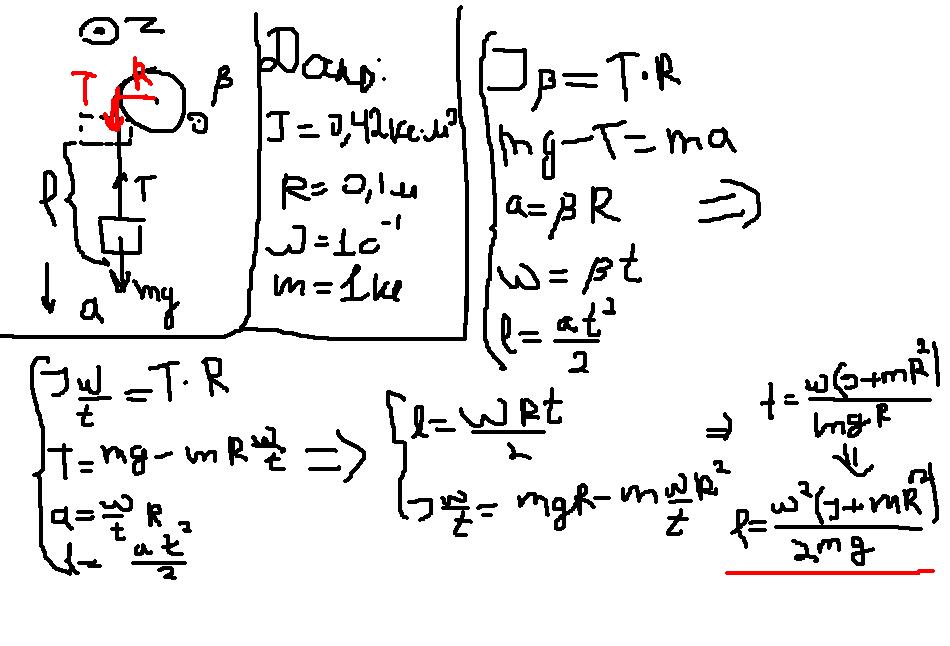 z
T R β
T
l
mg
a
Дано:
J = 0,42 кг·м²
R = 0,1 м
ω = 1 с⁻¹
m = 1 кг
Jβ = T·R
mg − T = ma
a = βR ⇒
ω = βt
l = at²/2
J ω/t = T·R
T = mg − mR ω/t ⇒
a = ω/t R
l = at²/2
l = ωRt/2 ⇒
J ω/t = mgR − m ωR²/t
t = ω(J+mR²)/mgR
⇓
l = ω²(J+mR²)/2mg